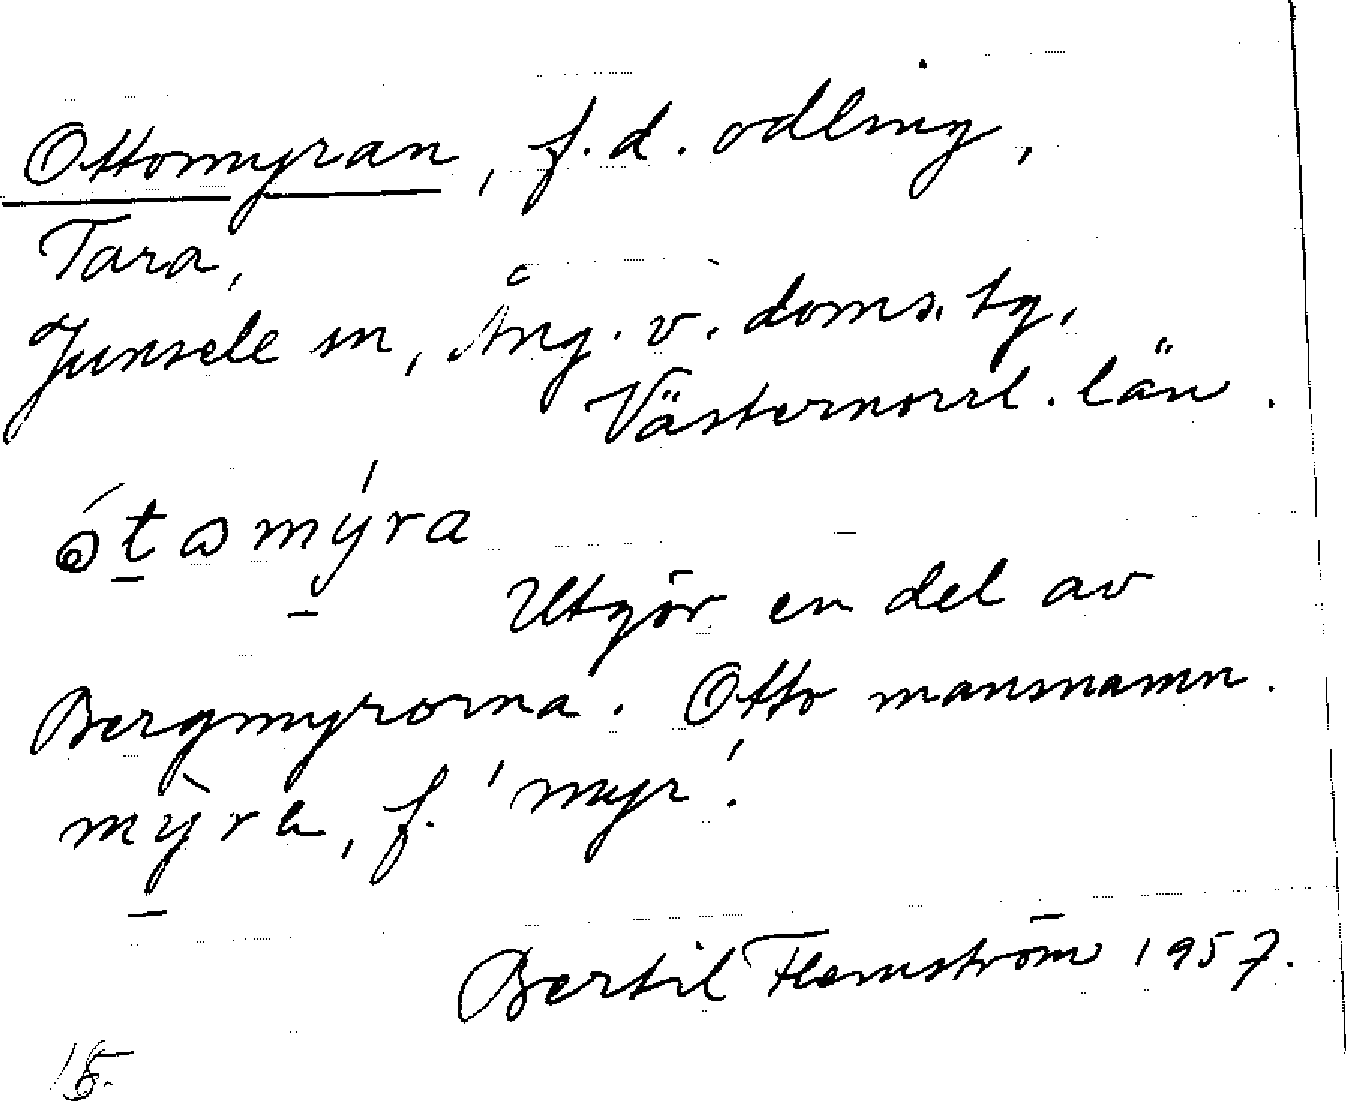 Ottomyran, f.d. odling,
Tara,
Junsele sn, Ång. v. doms. tg,
Västernorrl. län.
ótωmýra
Utgör en del av
Bergmyrorna. Otto mansnamn.
mỳra, f. 'myr'.
Bertil Flemström 1957.
15.